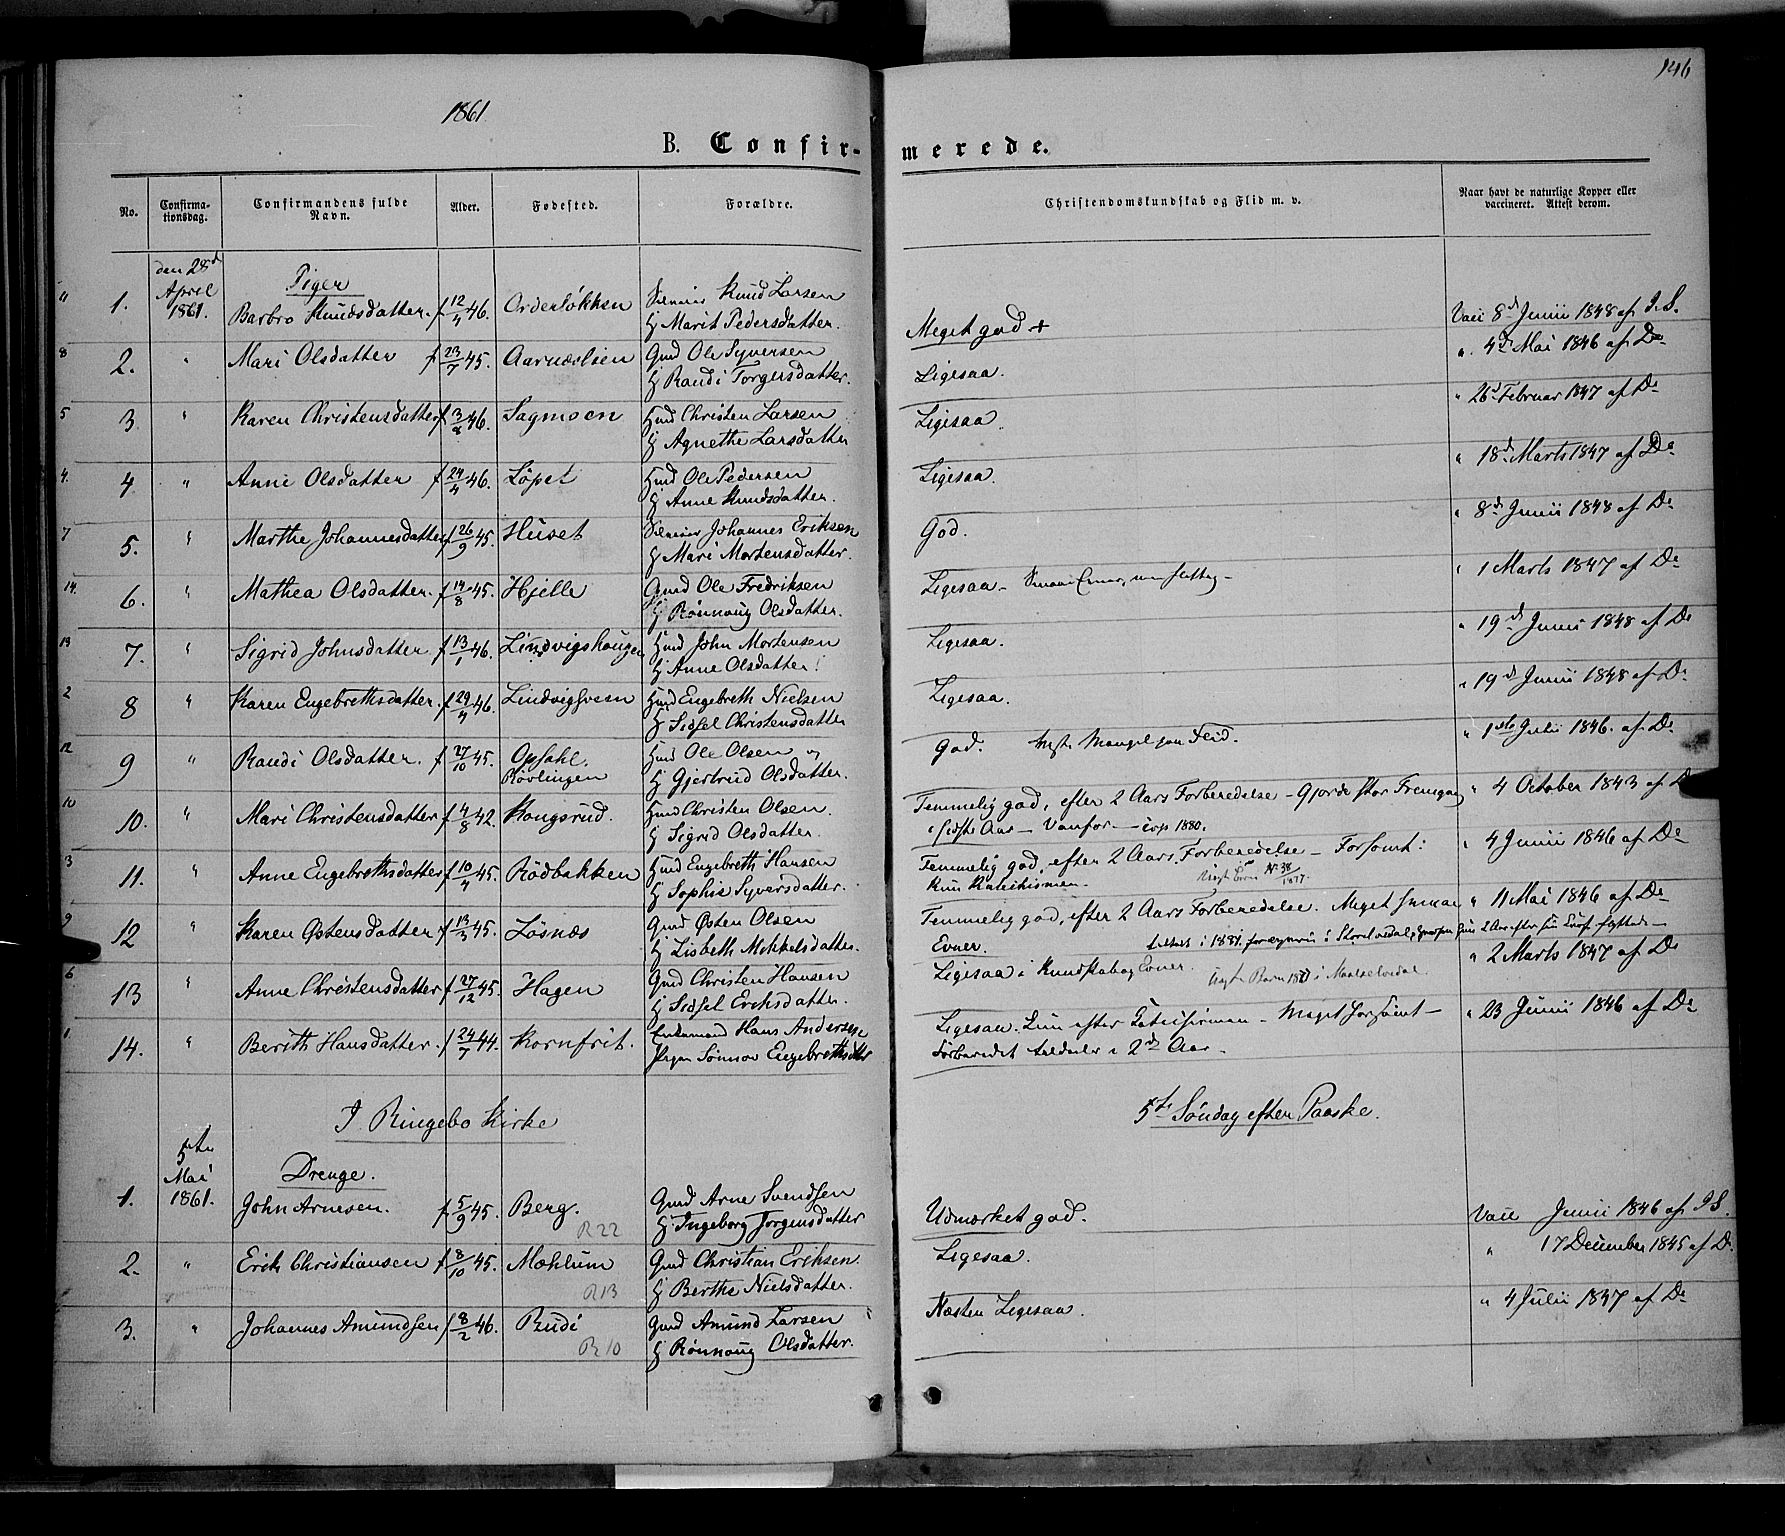 146
1861
B. Confir-
merede.
No.
Confirma-
tionsdag.
Confirmandens fulde
Navn.
Alder.
Fødested.
Forældre.
Christendomskundskab og Flid m. v.
Naar havt de naturlige Kopper eller
vaccineret. Attest derom.
den 28d
April
1861.
Piger
11 1. Barbro Knudsdatter. f 12/4 46. Orderløkken Knud Larsen
H Marit Pedersdatter. Meget god + Vacc 8d Junii 1848 af I. S.
8 2. " Mari Olsdatter f 23/7 45. Gmd Ole Syversen
H Randi Torgersdatter. Ligesaa. " 4d Mai 1846 af Do
5 3. " Karen Christensdatter f 3/8 46. Sagmoen Hmd Christen Larsen
H Agnethe Larsdatter Ligesaa. " 26d Februar 1847 af Do
4. 4 " Anne Olsdatter f 24/4 46. Løpet Hmd Ole Pedersen
H Anne Knudsdatter. Ligesaa. " 18d Marts 1847 af Do
7 5. " Marthe Johannesdatter f 26/9 45. Huset Johannes Eriksen
H Mari Mortensdatter. God. " 8d Junii 1848 af Do
14. 6. " Mathea Olsdatter. f 14/8 45. Hjelle Gmd Ole Fredriksen
H Rønnoug Olsdatter. Ligesaa - " 1 Marts 1847 af Do
13 7. " Sigrid Johnsdatter f 13/1 46. Lindvigshaugen Hmd John Mortensen
H Anne Olsdatter. Ligesaa. " 19d Junii 1848 af Do
2 8 " Karen Engebrethsdatter. f 29/4 46. Lindvigsveen Hmd Engebreth Nielsen
H Sidsel Christensdatter Ligesaa. " 19d Junii 1848 af Do
12 9 " Randi Olsdatter. f 27/10 45. Opsahl. Hmd Ole Olsen og
Røvlingen H Gjertrud Olsdatter. God. Mangel paa Flid. " 1ste Julii 1846. af Do
10 10. " Mari Christensdatter f 4/8 42. Kongsrud. Hmd Christen Olsen.
H Sigrid Olsdatter. Temmelig god, efter 2 Aars Forberedelse - Gjorde stor Fremgang " 4 October 1843 af D
i sidste Aar - Vanfør - 1880.
3 11. " Anne Engebrethsdatter f 10/4 45. Rødbakken Hmd Engebreth Hansen
H Sophie Syversdatter. Temmelig god, efter 2 Aars Forberedelse - Forsømt: " 4 Junii 1846 af Do
kun Katekismen. No 38/1877.
9 12 " Karen Østensdatter f 13/3 45. Løsnæs Gmd Østen Olsen
H Lisbeth Mikkelsdatter. Temmelig god, efter 2 Aars Forberedelse. Meget smaae " 11 Mai 1846 af Do
Evner. i Storelvedal,
6 13 " Anne Christensdatter f 27/12 45. Hagen Gmd Christen Hansen
H Sidsel Eriksdatter. Ligesaa i Kundskab og Evner. " 2 Marts 1847 af Do
1 14. " Berith Hansdatter. f 24/7 44. Kornfrit. Enkemand Hans Andersen
Pigen Sønnov Engebrethsdtr Ligesaa. Kun efter Katechismen - Meget forsømt - " 23 Junii 1846 af Do
Forberedet i 2d Aar.
I Ringebo Kirke
5te Søndag efter Paaske.
5te
Mai
1861.
Drenge.
1. John Arnesen. f 5/9 45. Berg. R22 Gmd Arne Svendsen
H. Ingeborg Jørgensdatter Udmærket god. Vacc Junii 1846 af I S.
2. " Erik Christiansen f 8/10 45. Mæhlum R13 Gmd Christian Eriksen.
H Berthe Nielsdatter. Ligesaa. " 17 December 1845 af D.
3. " Johannes Amundsen f 8/2 46. Rudi R10 Gmd Amund Larsen
H Rønnoug Olsdatter. Næsten Ligesaa. " 4 Julii 1847 af Do